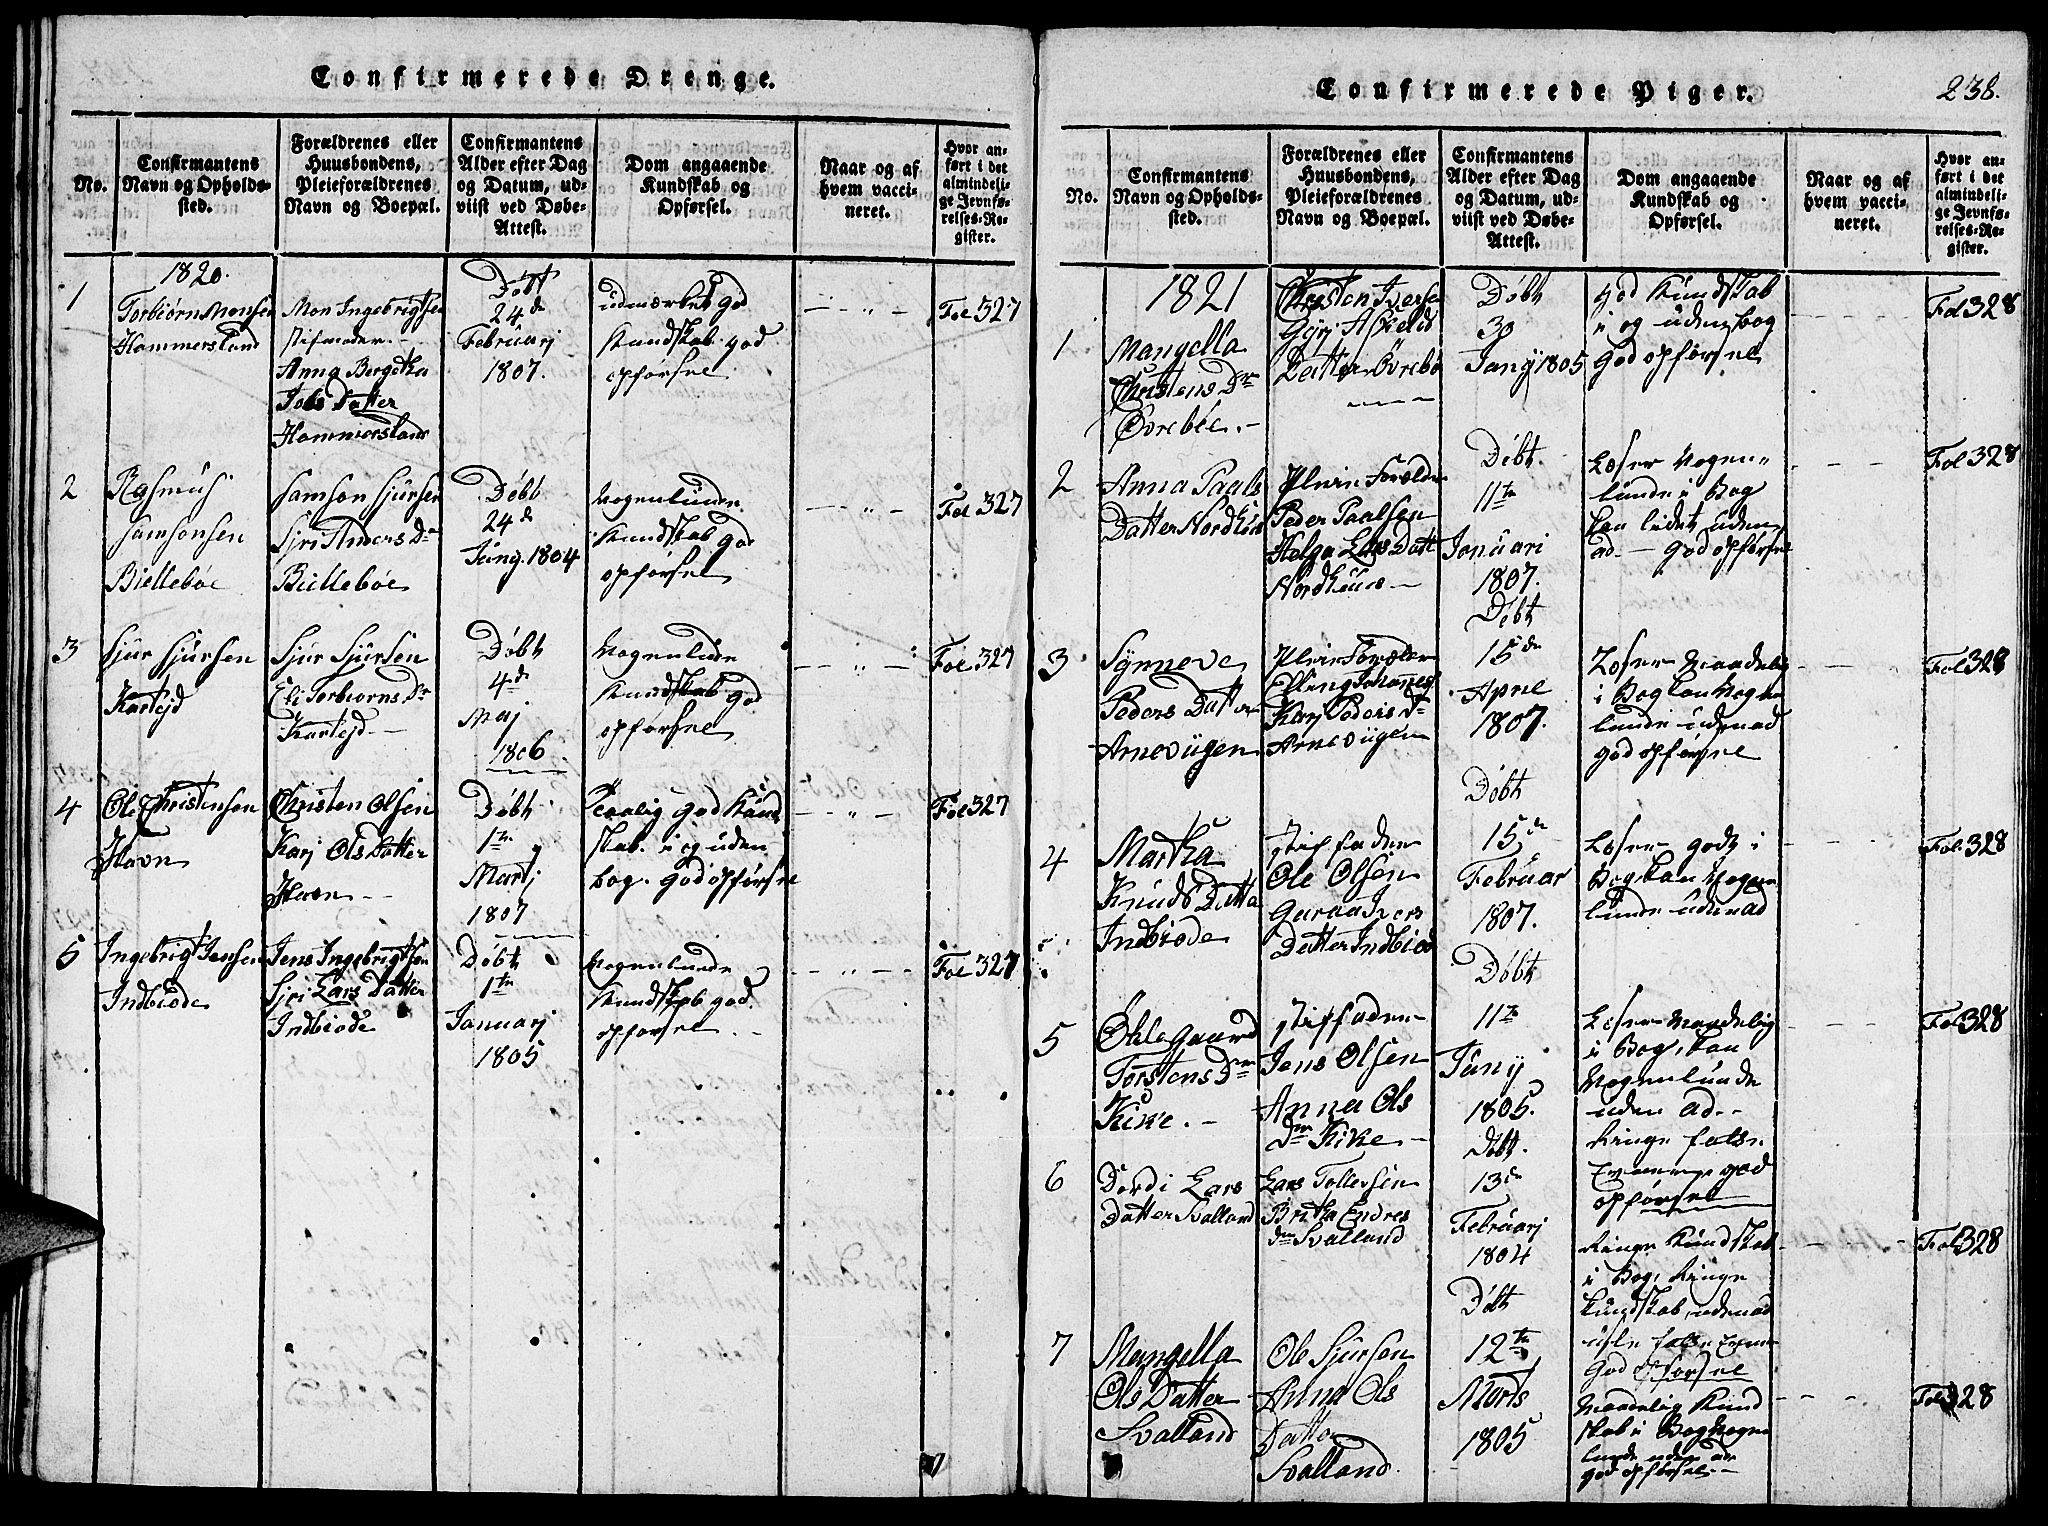 Confirmerede Drenge.
No.
Confirmantens
Navn og Opholds-
sted.
Forældrenes eller
Huusbondens,
Pleieforældrenes
Navn og Boepæl.
Confirmantens
Alder efter Dag
og Datum, ud-
viist ved Døbe-
Attest.
Dom angaaende
Kundskab og
Opførsel.
Naar og af
hvem vacci-
neret.
Hvor an-
ført i det
almindeli-
ge Jevnfø-
relses-Re-
gister.
1820.
1
Torbiørn Monsen
Hammersland
Mon Ingebrigtsen
stifmoder
Anna Bergitha
Jobs Datter
Hammersland
Døbt
24de
Februarj
1807.
udmærket god
Kundskab god
opførsel
Fol 327
2
Rasmus
Samsonsen
Biellebøe
Samson Sjursen
Sjri Anders Dr
Biellebøe
Døbt
24de
Juny. 1804
Nogenlunde
Kundskab god
opførsel
Fol 327
3
Sjur Sjursen
Kartejd
Sjur Sjursen
Eli Torbiorns Dr
Kartejd
Døbt
4de
Maj
1806.
Nogenlunde
Kundskab god
opførsel
Fol 327
4
Ole Christensen
Havn
Christen Olsen
Karj Ols Datter
Havn
Døbt
1te
Martj
1807
Temmelig god Kund
skab i og uden
bog. God opførsel
Fol 327
5
Ingebrigt Jensen
Indbiode
Jens Ingebrigtsen
Sjri Lars Datter
Indbiode
Døbt
1te
Januarj
1805
Nogenlunde
Kundskab god
opførsel
Fol 327
Confirmerede Piger.
238.
No.
Confirmantens
Navn og Opholds-
sted.
Forældrenes eller
Huusbondens,
Pleieforældrenes
Navn og Boepæl.
Confirmantens
Alder efter Dag
og Datum, ud-
viist ved Døbe-
Attest.
Dom angaaende
Kundskab og
Opførsel.
Naar og af
hvem vacci-
neret.
Hvor an-
ført i det
almindeli-
ge Jevnfø-
relses-Re-
gister.
1821
1
Mangella
Christens Dr
Øvrebøe.
Christen Iversen
Gyrj Askelds
Datter Øvrebø
Døbt
30
Jany 1805
God Kundskab
i og uden bog
God opførsel
Fol 328
2
Anna Paals
Datter Nordhuus
Pleie Forældre
Peder Paalsen
Helga Lars Datt
Nordhuus
Døbt.
11te
Januari
1807.
Læser Nogen-
lunde i Bog
kan lidet uden
ad. God opførsel
Fol 328
3
Synneve
Peders Datter
Arnevigen
Pleie Forælder
Elling Johannes
Karj Peders Dr
Arnevigen
Døbt
15de
April
1807.
Læser Maadelig
i Bog kan Nogen
lunde udenad
god opførsel
Fol 328
4
Martha
Knuds Datter
Indbiode
Stiffader
Ole Olsen
Ivers
Datter Indbiod
Døbt
15de
Februar
1807.
Læser godt i
Bog kan Nogen
lunde udenad
Fol. 328
5
Oldegaard
Torstens Dr
Kirke.
Stiffader
Jens Olsen
Anna Ols
Dr Kirke
Døbt
11te
Juny
1805.
Læser Maadelig
i Bog, kan
Nogenlunde
uden ad.
Ringe
god
opførsel
Fol 328
6
Dordi Lars
Datter Svalland
Lars Tollefsen
Britha Endres
Dr Svalland
Døbt.
13de
Februarj
1804
Ringe Kundskab
i Bog, Ringe
Kundskab udenad
God opførsel
Fol 328
7
Mangella
Ols Datter
Svalland
Ole Sjursen
Anna Ols
Datter
Svalland
Døbt
12te
Marts
1805
Maadelig Kund
skab i Bog Nogen
lunde uden ad
god opførsel
Fol 328